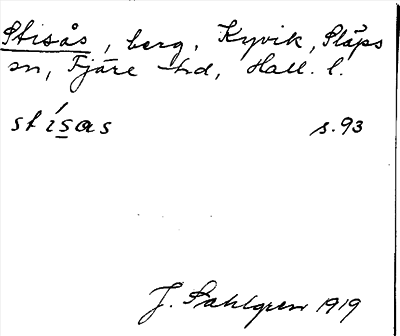 Stisås, berg, Kyvik, Släps
sn, Fjäre hd, Hall. l.
stísas s. 93
J. Sahlgren 1919